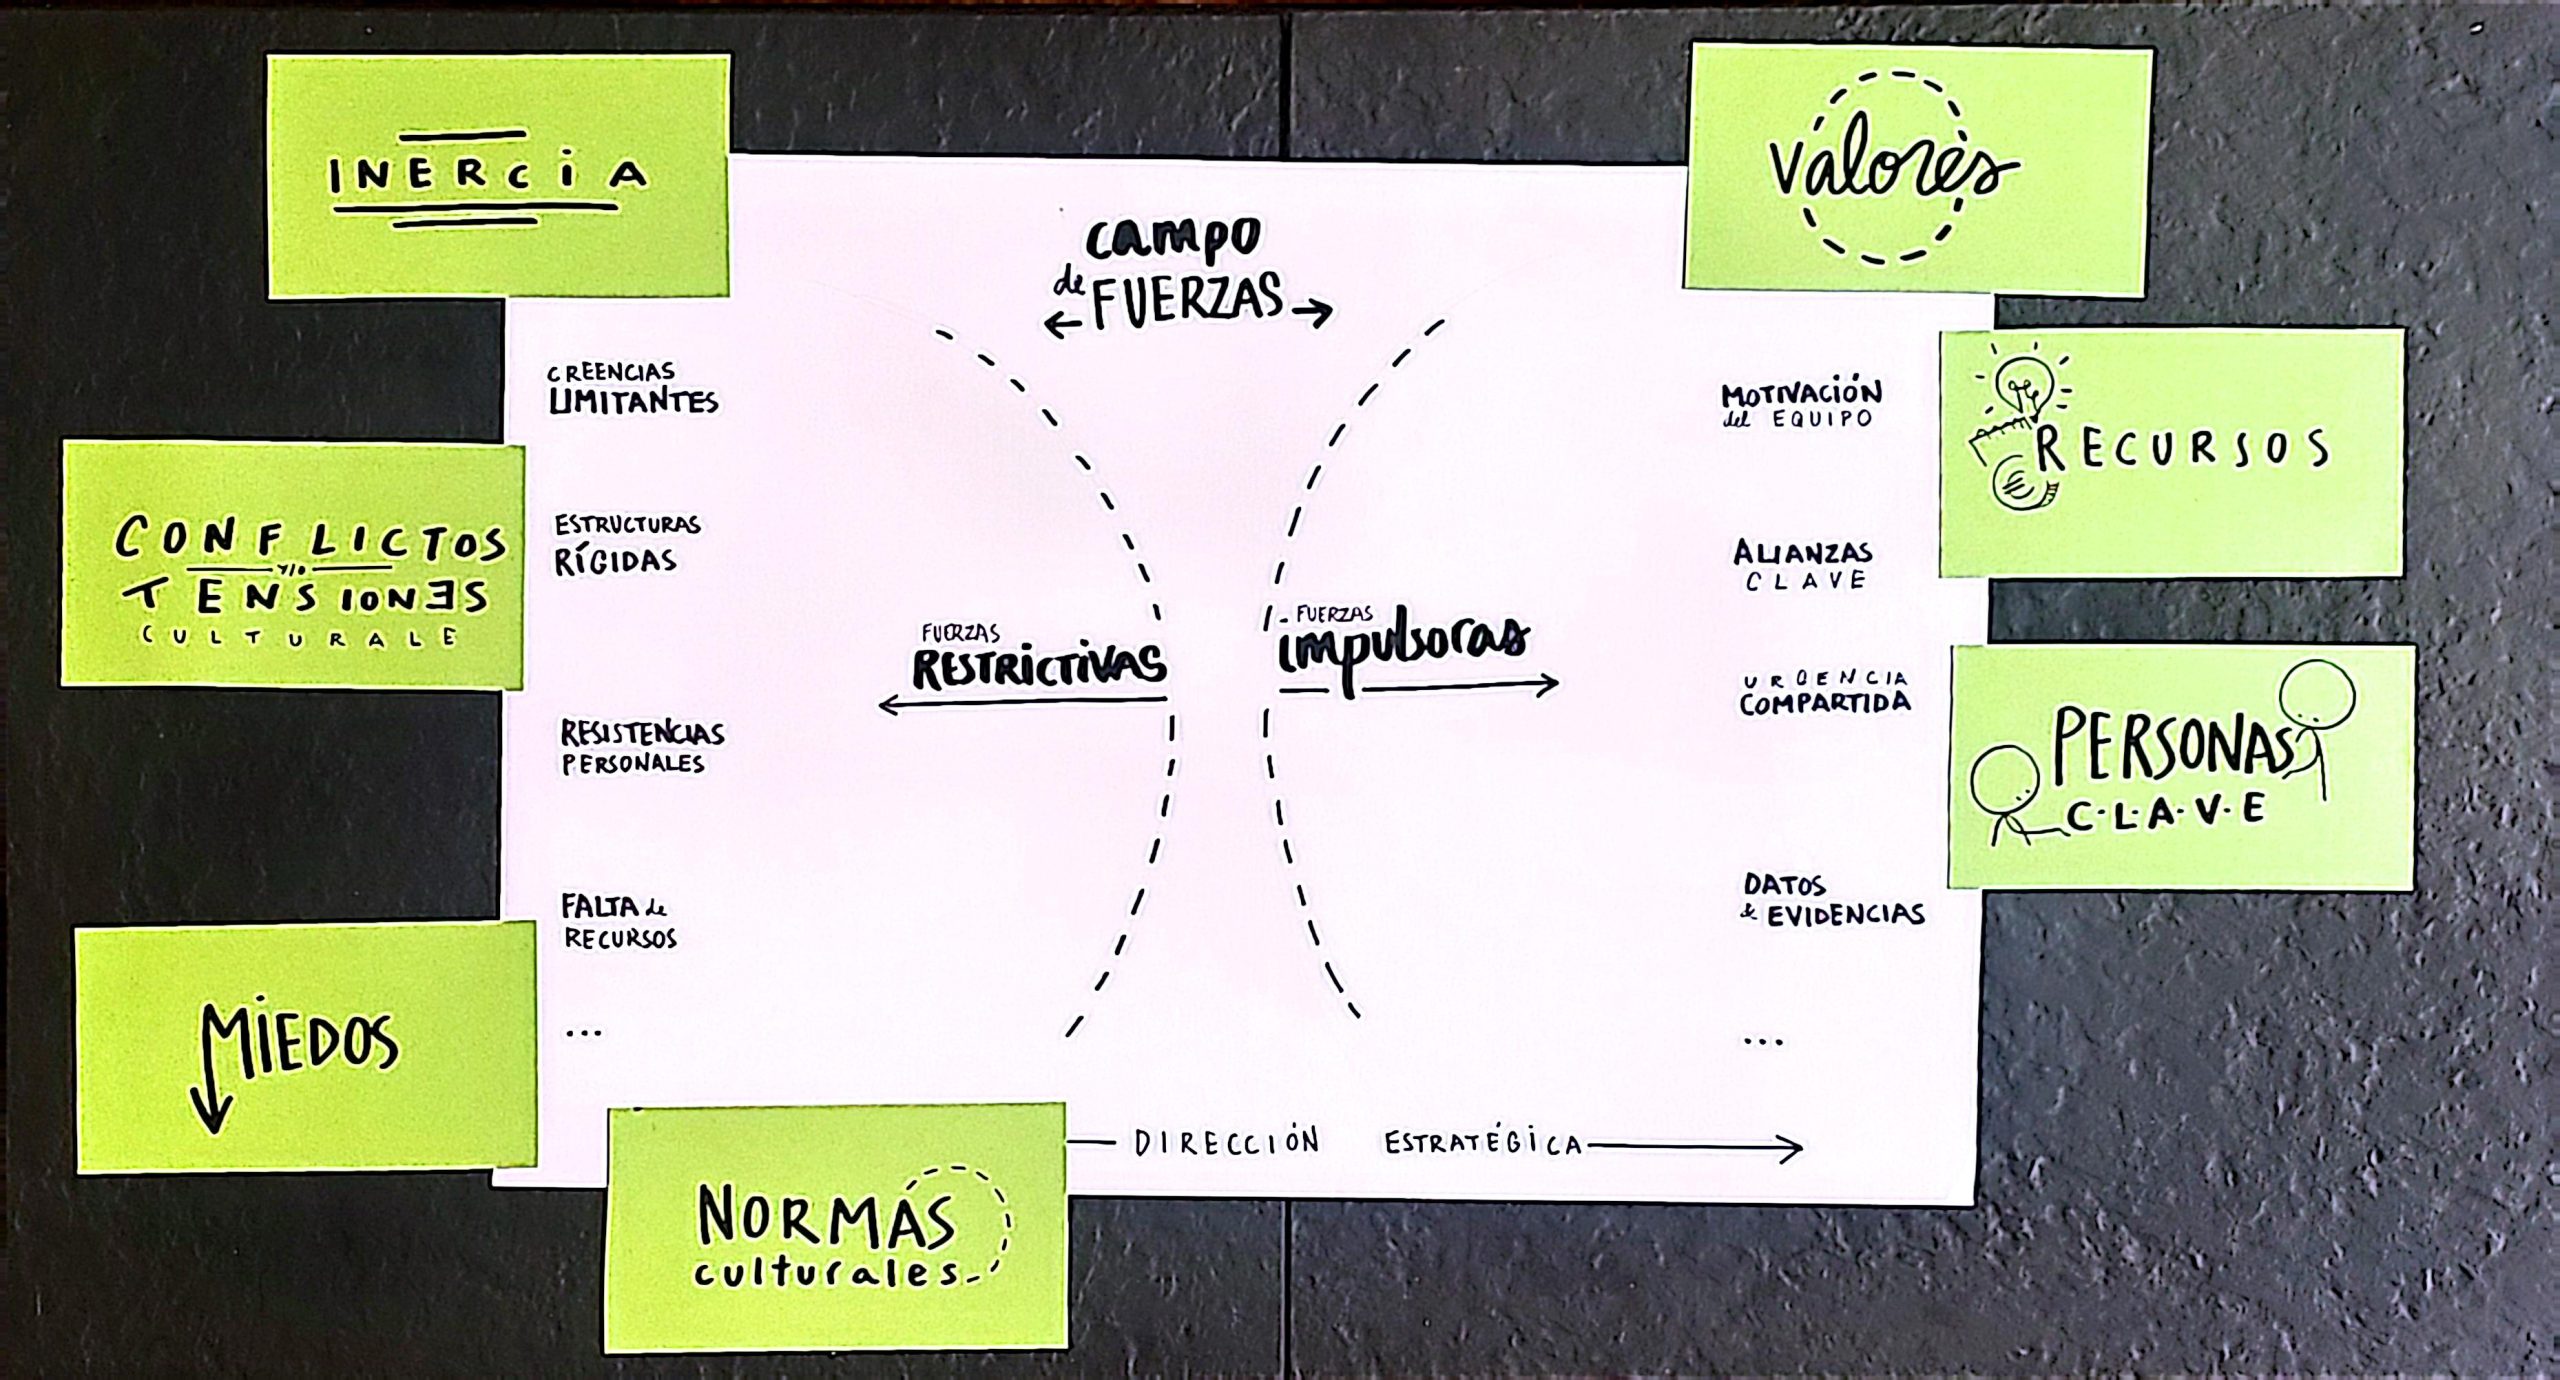 INERCIA
CONFLICTOS
y/o
TENSIONES
CULTURALE
MIEDOS
NORMAS
culturales
campo
de FUERZAS
CREENCIAS
LIMITANTES
ESTRUCTURAS
RÍGIDAS
RESISTENCIAS
PERSONALES
FALTA de
RECURSOS
...
FUERZAS
RESTRICTIVAS
FUERZAS
impulsoras
MOTIVACIÓN
del EQUIPO
ALIANZAS
CLAVE
URGENCIA
COMPARTIDA
DATOS
& EVIDENCIAS
...
DIRECCIÓN ESTRATÉGICA
valores
RECURSOS
€
PERSONAS
C·L·A·V·E